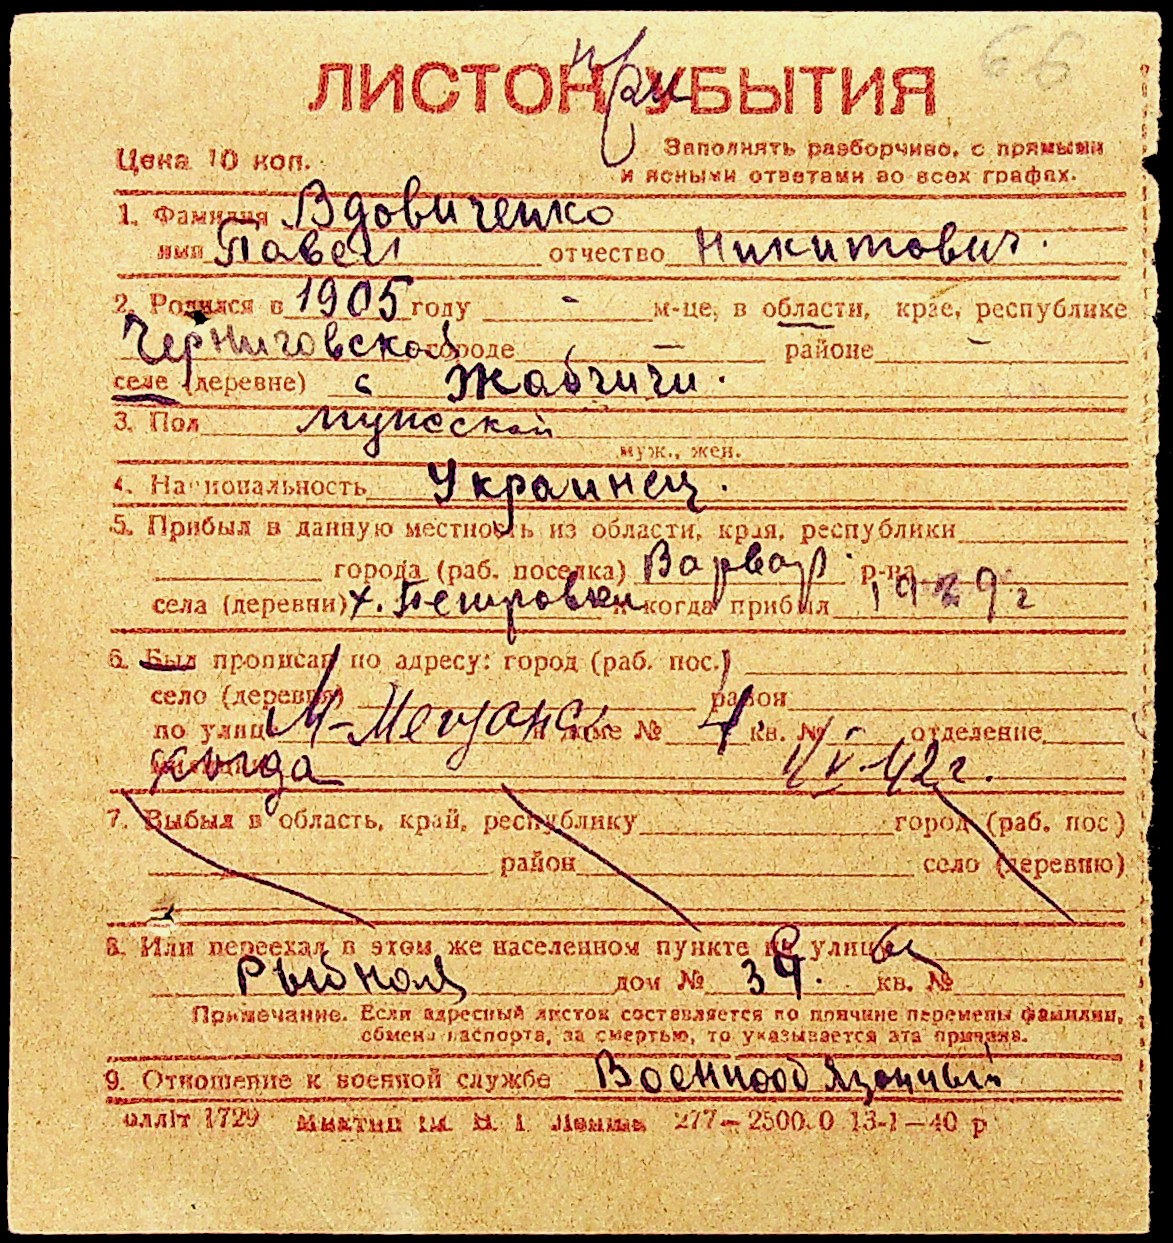 66
ЛИСТОК УБЫТИЯ
при
Цена 10 коп.
Заполнять разборчиво, с прямыми
и ясными ответами во всех графах.
1. Фамилия Вдовиченко
имя Павел отчество Никитович.
2. Родился в 1905 году - м-це, в области, крае, республике
Черниговской городе - районе -
селе (деревне) с Жабчичи.
3. Пол мужской
муж., жен.
4. Национальность Украинец.
5. Прибыл в данную местность из области, края, республики
города (раб. поселка) Варвар. р-на
села (деревни) х. Петровки и когда прибыл 1929 г
6. Был прописан по адресу: город (раб. пос.)
село (деревня) район
по улице М-Мещанск доме № 4. кв. № отделение
милиции 42 г.
7. Выбыл в область, край, республику город (раб. пос.)
район село (деревню)
8. Или переехал в этом же населенном пункте по улице
Рыбной дом № 39. кв. №
Примечание. Если адресный листок составляется по причине перемены фамилии,
обмена паспорта, за смертью, то указывается эта причина.
9. Отношение к военной службе Военнообязанный
1729 277—2500.0 13-1—40 р